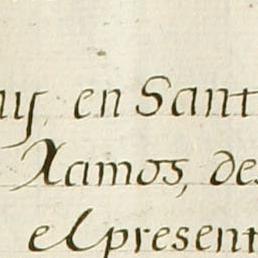 en Sant
Xamos, des
el present